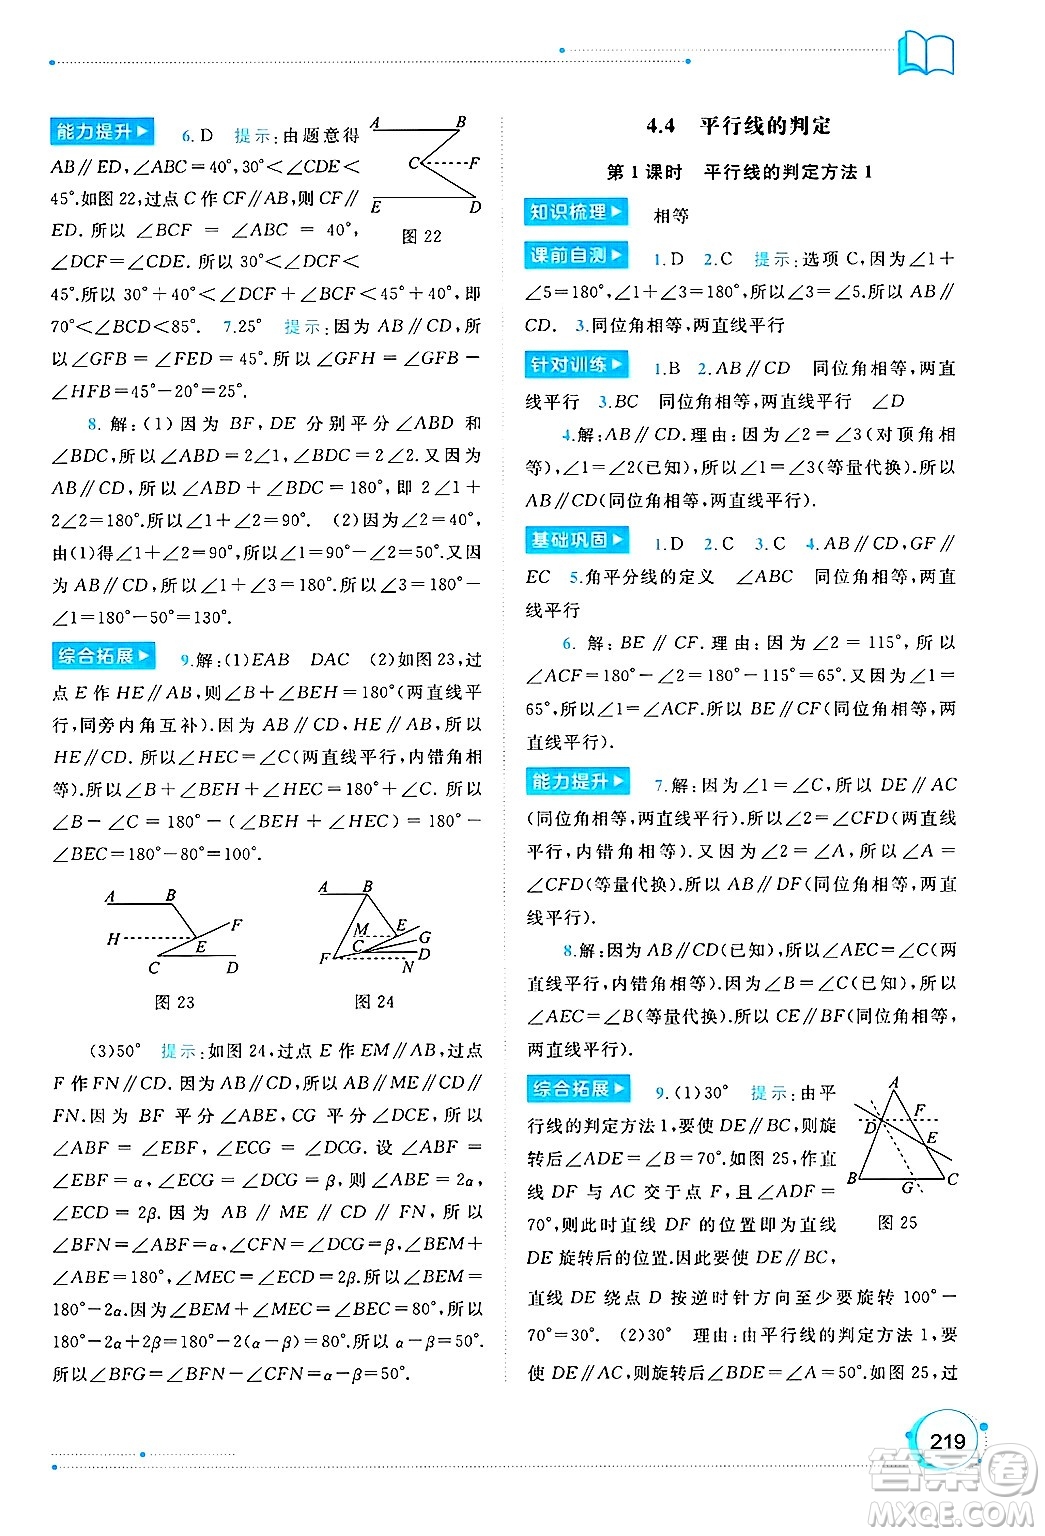 能力提升 6.D 提示:由题意得
AB∥ED,∠ABC=40°,30°<∠CDE<
45°.如图22,过点C作CF∥AB,则CF∥
ED.所以∠BCF=∠ABC=40°,
∠DCF=∠CDE.所以30°<∠DCF<
45°.所以30°+40°<∠DCF+∠BCF<85°,即
70°<∠BCD<85°. 7.25° 提示:因为AB∥CD,所
以∠GFB=∠FED=45°.所以∠GFH=∠GFB-
∠HFB=45°-20°=25°.
A B
C F
E D
图22
8.解:(1)因为BF,DE分别平分∠ABD和
∠BDC,所以∠ABD=2∠1,∠BDC=2∠2.又因为
AB∥CD,所以∠ABD+∠BDC=180°,即2∠1+
2∠2=180°.所以∠1+∠2=90°. (2)因为∠2=40°,
由(1)得∠1+∠2=90°,所以∠1=90°-∠2=50°.又因
为AB∥CD,所以∠1+∠3=180°.所以∠3=180°-
∠1=180°-50°=130°.
综合拓展 9.解:(1)EAB DAC (2)如图23,过
点E作HE∥AB,则∠B+∠BEH=180°(两直线平
行,同旁内角互补).因为AB∥CD,HE∥AB,所以
HE∥CD.所以∠HEC=∠C(两直线平行,内错角相
等).所以∠B+∠BEH+∠HEC=180°+∠C.所以
∠B-∠C=180°-(∠BEH+∠HEC)=180°-
∠BEC=180°-80°=100°.
A B
H E F
C D
图23
A B
M E
C G
F D
N
图24
(3)50° 提示:如图24,过点E作EM∥AB,过点
F作FN∥CD.因为AB∥CD,所以AB∥ME∥CD∥
FN.因为BF平分∠ABE,CG平分∠DCE,所以
∠ABF=∠EBF,∠ECG=∠DCG.设∠ABF=
∠EBF=α,∠ECG=∠DCG=β,则∠ABE=2α,
∠ECD=2β.因为AB∥ME∥CD∥FN,所以
∠BFN=∠ABF=α,∠CFN=∠DCG=β,∠ABE+
∠BEM=180°,∠MEC=∠ECD=2β.所以∠BEM=
180°-2α.因为∠BEM+∠MEC=∠BEC=80°,所以
180°-2α+2β=180°-2(α-β)=80°.所以α-β=50°.
所以∠BFG=∠BFN-∠CFN=α-β=50°.
4.4 平行线的判定
第1课时 平行线的判定方法1
知识梳理 相等
课前自测 1.D 2.C 提示:选项C,因为∠1+
∠5=180°,∠1+∠3=180°,所以∠3=∠5.所以AB∥
CD. 3.同位角相等,两直线平行
针对训练 1.B 2.AB∥CD 同位角相等,两直
线平行 3.BC 同位角相等,两直线平行 ∠D
4.解:AB∥CD.理由:因为∠2=∠3(对顶角相
等),∠1=∠2(已知),所以∠1=∠3(等量代换).所以
AB∥CD(同位角相等,两直线平行).
基础巩固 1.D 2.C 3.C 4.AB∥CF,GF∥
EC 5.角平分线的定义 ∠ABC 同位角相等,两直
线平行
6.解:BE∥CF.理由:因为∠2=115°,所以
∠ACF=180°-∠2=180°-115°=65°.因为∠1=
65°,所以∠1=∠ACF.所以BE∥CF(同位角相等,两
直线平行).
能力提升 7.解:因为∠1=∠C,所以DE∥AC
(同位角相等,两直线平行).所以∠2=∠CFD(两直线
平行,内错角相等).又因为∠2=∠A,所以∠A=
∠CFD(等量代换).所以AB∥DF(同位角相等,两直
线平行).
8.解:因为AB∥CD(已知),所以∠AEC=∠C(两
直线平行,内错角相等).因为∠B=∠C(已知),所以
∠AEC=∠B(等量代换).所以CE∥BF(同位角相等,
两直线平行).
综合拓展 9.(1)30° 提示:由平
行线的判定方法1,要使DE∥BC,则旋
转后∠ADE=∠B=70°.如图25,作直
线DF与AC交于点F,使∠ADF=
70°,则此时直线DF的位置即为直线
DE旋转后的位置.因此要使DE∥BC,
A
D F
E
B G C
图25
直线DE绕点D按逆时针方向至少要旋转100°-
70°=30°. (2)30° 理由:由平行线的判定方法1,要
使DE∥AC,则旋转后∠BDE=∠A=50°.如图25,过
219
答案圈
MXQE.COM